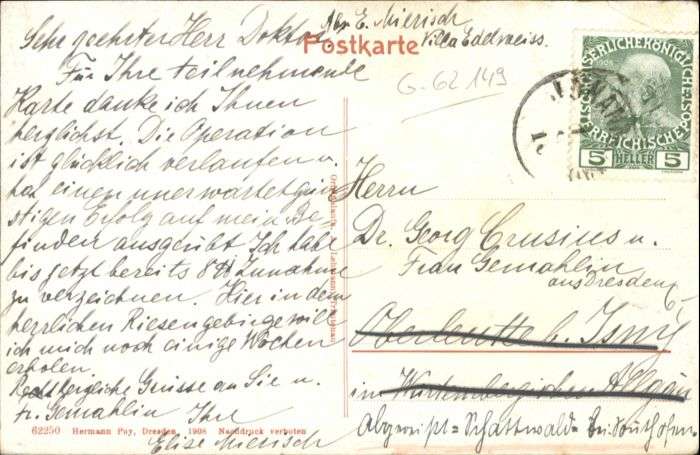 Abs. E. Mierisch
Villa Edelweiss.
Postkarte
G-62 149
Sehr geehrter Herr Doktor
Für Ihre teilnehmende
Karte danke ich Ihnen
herzlichst. Die Operation
ist glücklich verlaufen u.
hat einen unerwartet gün
stigen Erfolg auf mein Be-
finden ausgeübt. Ich habe
bis jetzt bereits 8 ℔ Zunahme
zu verzeichnen. Hier in dem
herrlichen Riesengebirge will
ich mich noch einige Wochen
erholen.
Recht herzliche Grüsse an Sie u.
Fr. Gemahlin Ihre
Elise Mierisch
62250 Hermann Poy, Dresden, 1908 Nachdruck verboten
KAISERLICHE KÖNIGLICHE
ÖSTERREICHISCHE POST
1908
5 HELLER 5
Herrn
Dr. Georg Crusius u.
Frau Gemahlin
aus Dresden
b. Isny
im Württembergischen Allgäu
Abgereist = Schattwald = bei Sonthofen